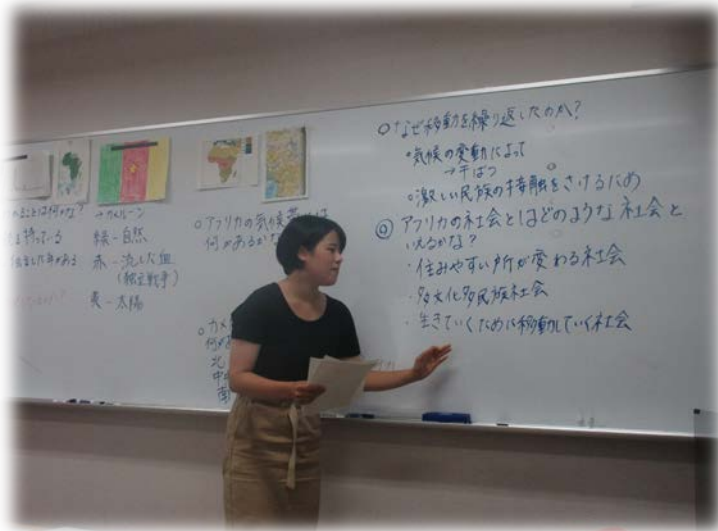 ることは何かな?
を持っている
→カメルーン
緑-自然
赤-流した血
(独立戦争)
黄-太陽
○アフリカの気候帯には
何があるかな
○カメ
何が
北
中
南
○なぜ移動を繰り返したのか?
○気候の変動によって
→干ばつ
○激しい民族の接触をさけるため
◎アフリカの社会とはどのような社会と
いえるかな?
・住みやすい所が変わる社会
・多文化多民族社会
・生きていくために移動していく社会